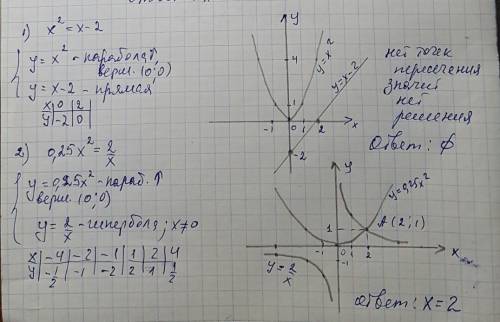 1) x² = x-2
y = x² - парабола↑
верш. (0;0)
y = x-2 - прямая
x | 0 | 2
y | -2 | 0
y
4
y=x²
y=x-2
1
-1 0 2 x
-2
нет точек
пересечения
значит
нет
решения
Ответ: ∅
2) 0,25x² = 2/x
y = 0,25x² - параб. ↑
верш. (0;0)
y = 2/x - гипербола; x≠0
x | -4 | -2 | -1 | 1 | 2 | 4
y | -1/2 | -1 | -2 | 2 | 1 | 1/2
y
y=0,25x²
1 A(2;1)
-1 0 2 x
-1
y = 2/x
Ответ: x = 2